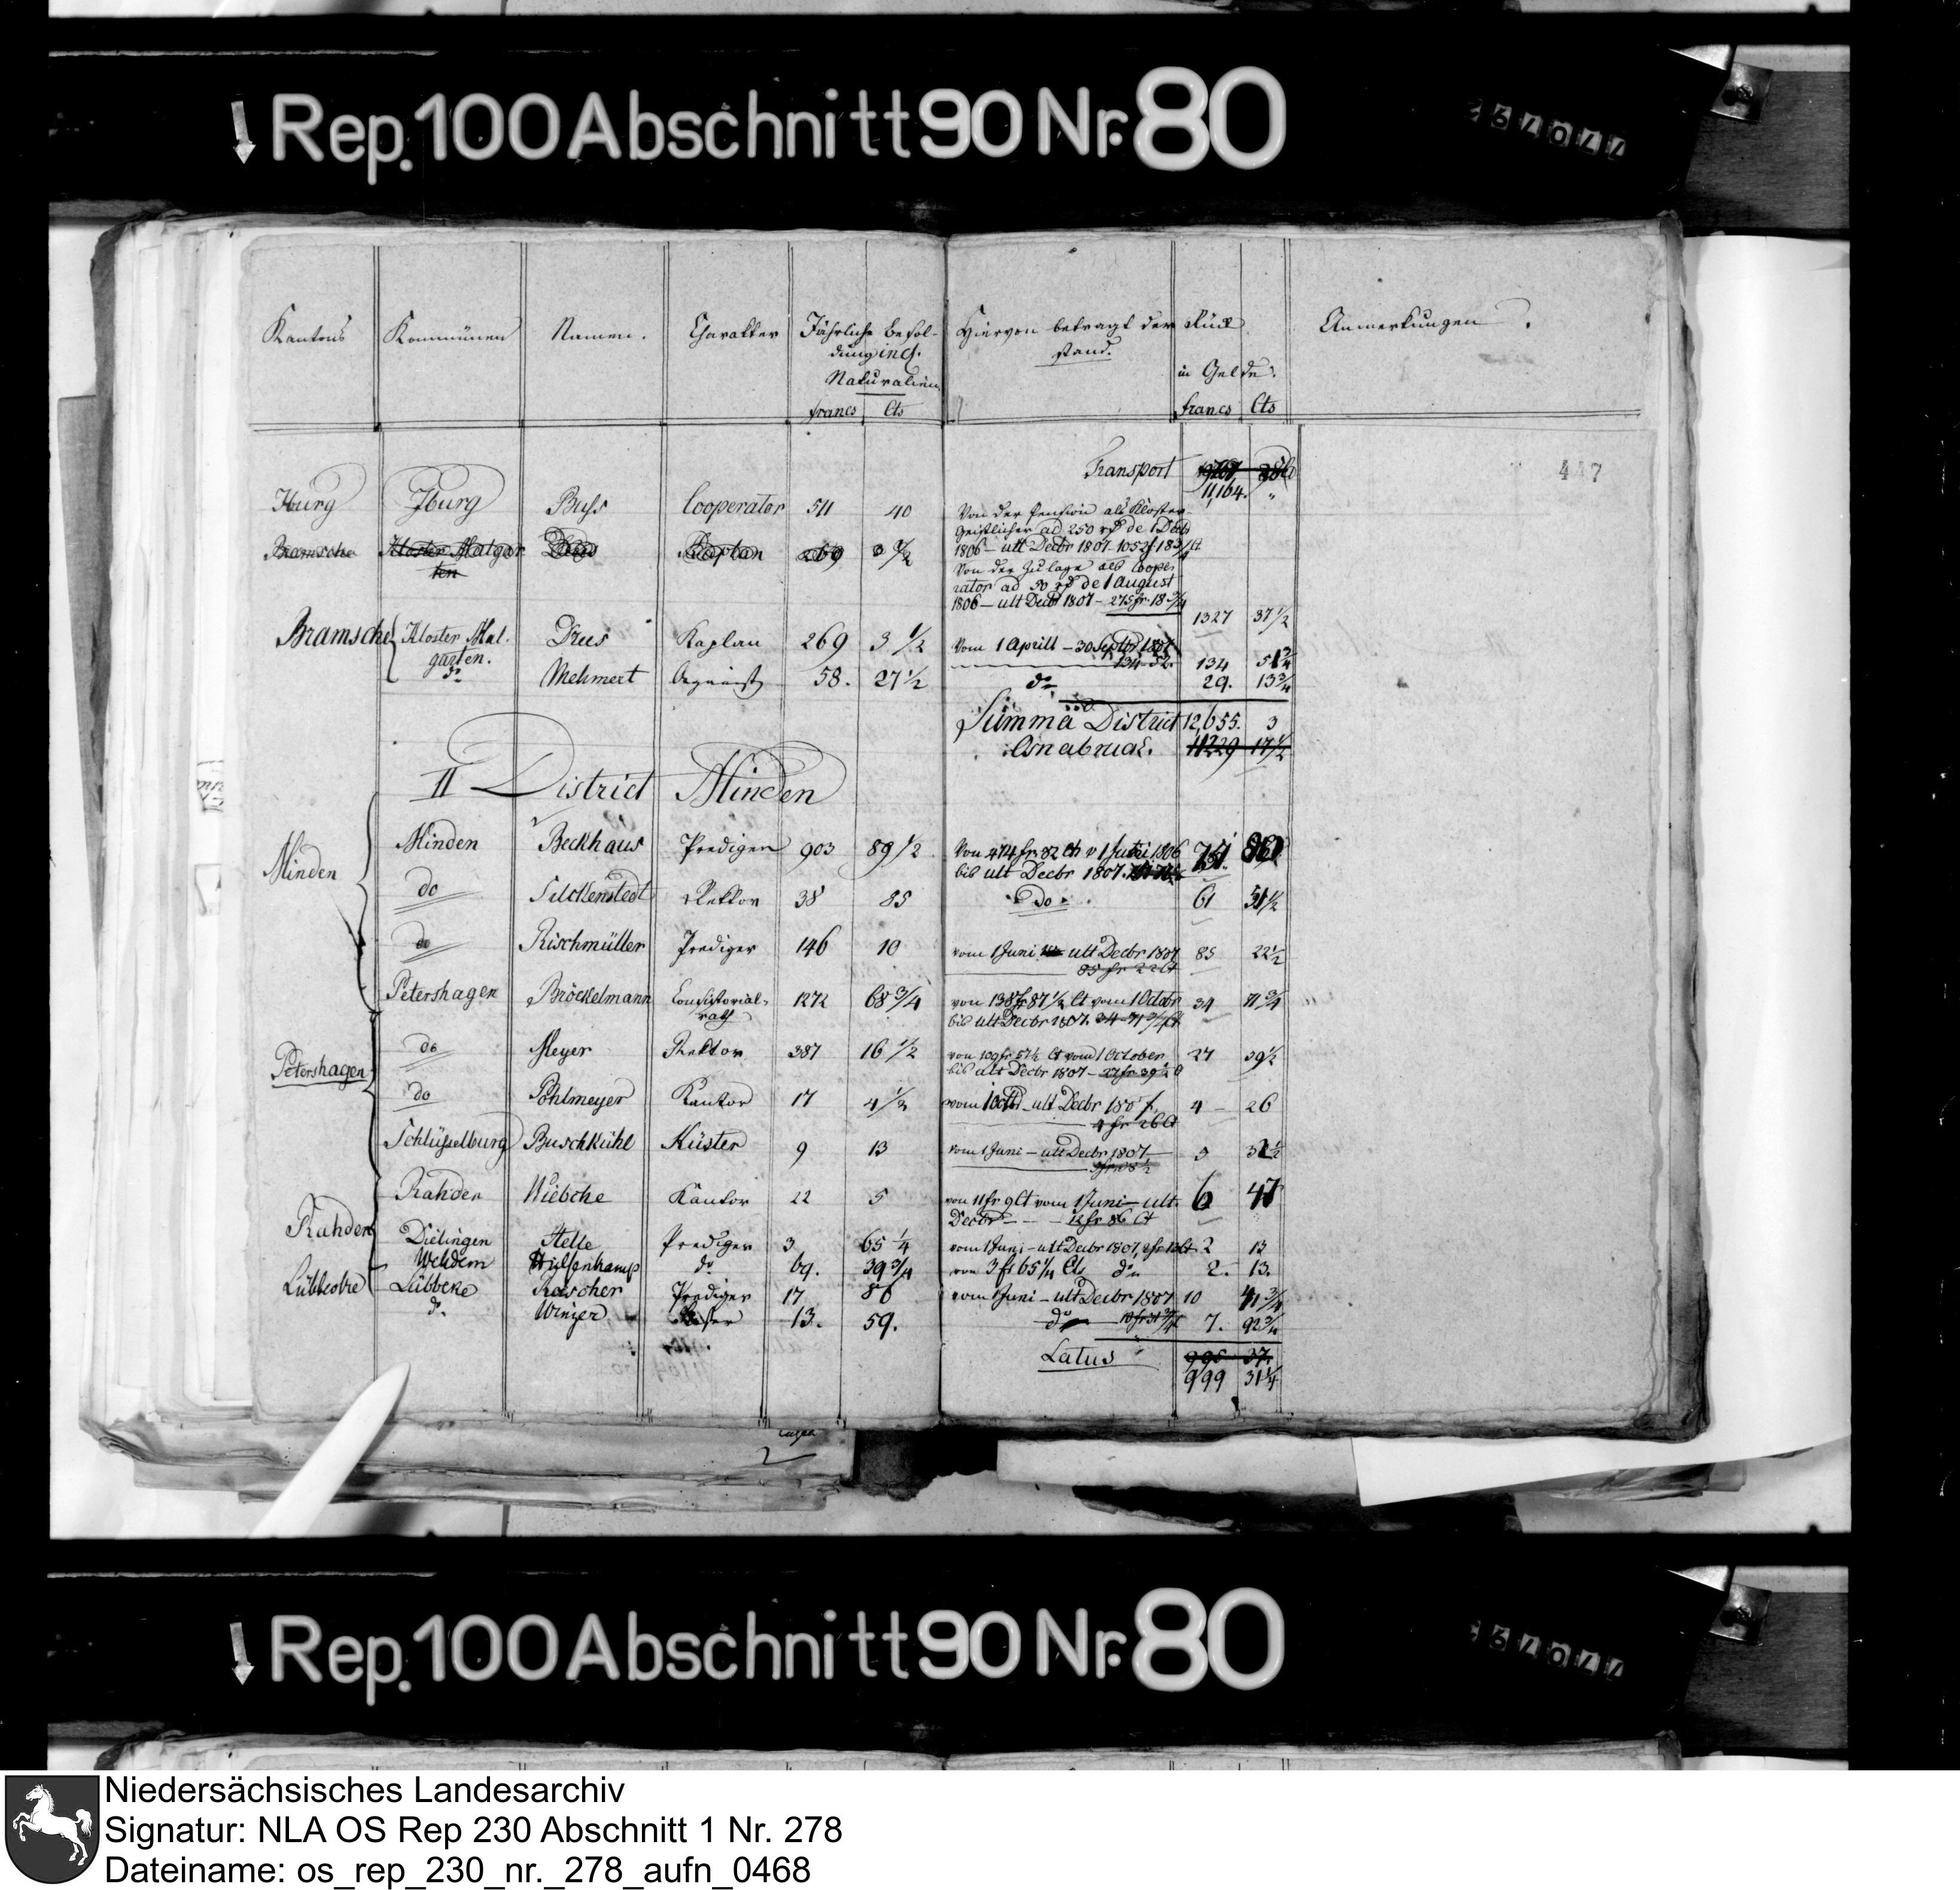 Rep. 100 Abschnitt 90 Nr. 80
Kantons Kommünen Namen. Charakter Jährliche Besol- Hiervon betragt der Rück Anmerkungen.
dung incl. stand.
Naturalien in Gelde.
francs Cts francs Cts
Transport
11,164. "
447
Iburg Iburg Buss Cooperator 511 40 Von der Pension als Kloster
geistlicher ad 250 de 1
Bramsche Kloster Malgar Kaplan 269 3 1/2 1806 – ult Decbr 1807 – 1052 f 18 3/4 ct
ten
Von der Zulage als Coope
rator ad 50 de 1 August
1806 – ult Decbr 1807 – 275 fr. 18 3/4
1327 37 1/2
Bramsche Kloster Mal- Drees Kaplan 269 3 1/2 Vom 1 Aprill – 30 Septbr 1807
garten. 134 52. 134 51 3/4
do Mehmert Organist 58. 27 1/2 do 29. 13 3/4
Summa District 12,655. 3
Osnabruck. 11229 17 1/2
II District Minden
Minden Minden Beckhaus Prediger 903 89 1/2 Von 474 fr. 82 ct v 1 Juni 1806 751.
bis ult Decbr 1807.
do Rektor 38 85 do 61 51 1/2
do Rischmüller Prediger 146 10 vom 1 Juni ult Decbr 1807 85 22 1/2
85 fr 22 ct
Petershagen Bröckelmann Consistorial- 1272 68 3/4 von 138 fr 87 1/2 Ct vom 1 Octobr 34 71 3/4
rath bis ult Decbr 1807. 34 - 71 3/4 ct
Petershagen do Meyer Rektor 387 16 1/2 von 109 fr 57 1/2 Ct vom 1 October 27 39 1/2
bis ult Decbr 1807 – 27 fr 39 1/2 ct
do Pohlmeyer Kantor 17 4 1/2 vom 1 Octbr – ult Decbr 1807. 4 – 26
4 fr 26 ct
Schlüsselburg Buschkühl Küster 9 13 vom 1 Juni – ult Decbr 1807 5 32 1/2
Rahden Rahden Wiebche Kantor 22 5 von 11 fr 9 Ct vom 1 Juni – ult. 6 47
Decbr – – – 12 fr 86 Ct
Dielingen Stelle Prediger 3 65 1/4 vom 1 Juni – ult Decbr 1807, 2 fr 13 Ct. 2 13
Wehdem Hülsenkamp do 69. 39 3/4 von 3 fr 65 1/4 Cts do 2. 13.
Lübbecke Lübbeke Rascher Prediger 17 86 vom 1 Juni – ult Decbr 1807 10 41 3/4
do Winzer 13. 59. do 7. 92 3/4
Latus 995 37.
999 31 1/4
Rep. 100 Abschnitt 90 Nr. 80
Niedersächsisches Landesarchiv
Signatur: NLA OS Rep 230 Abschnitt 1 Nr. 278
Dateiname: os_rep_230_nr._278_aufn_0468